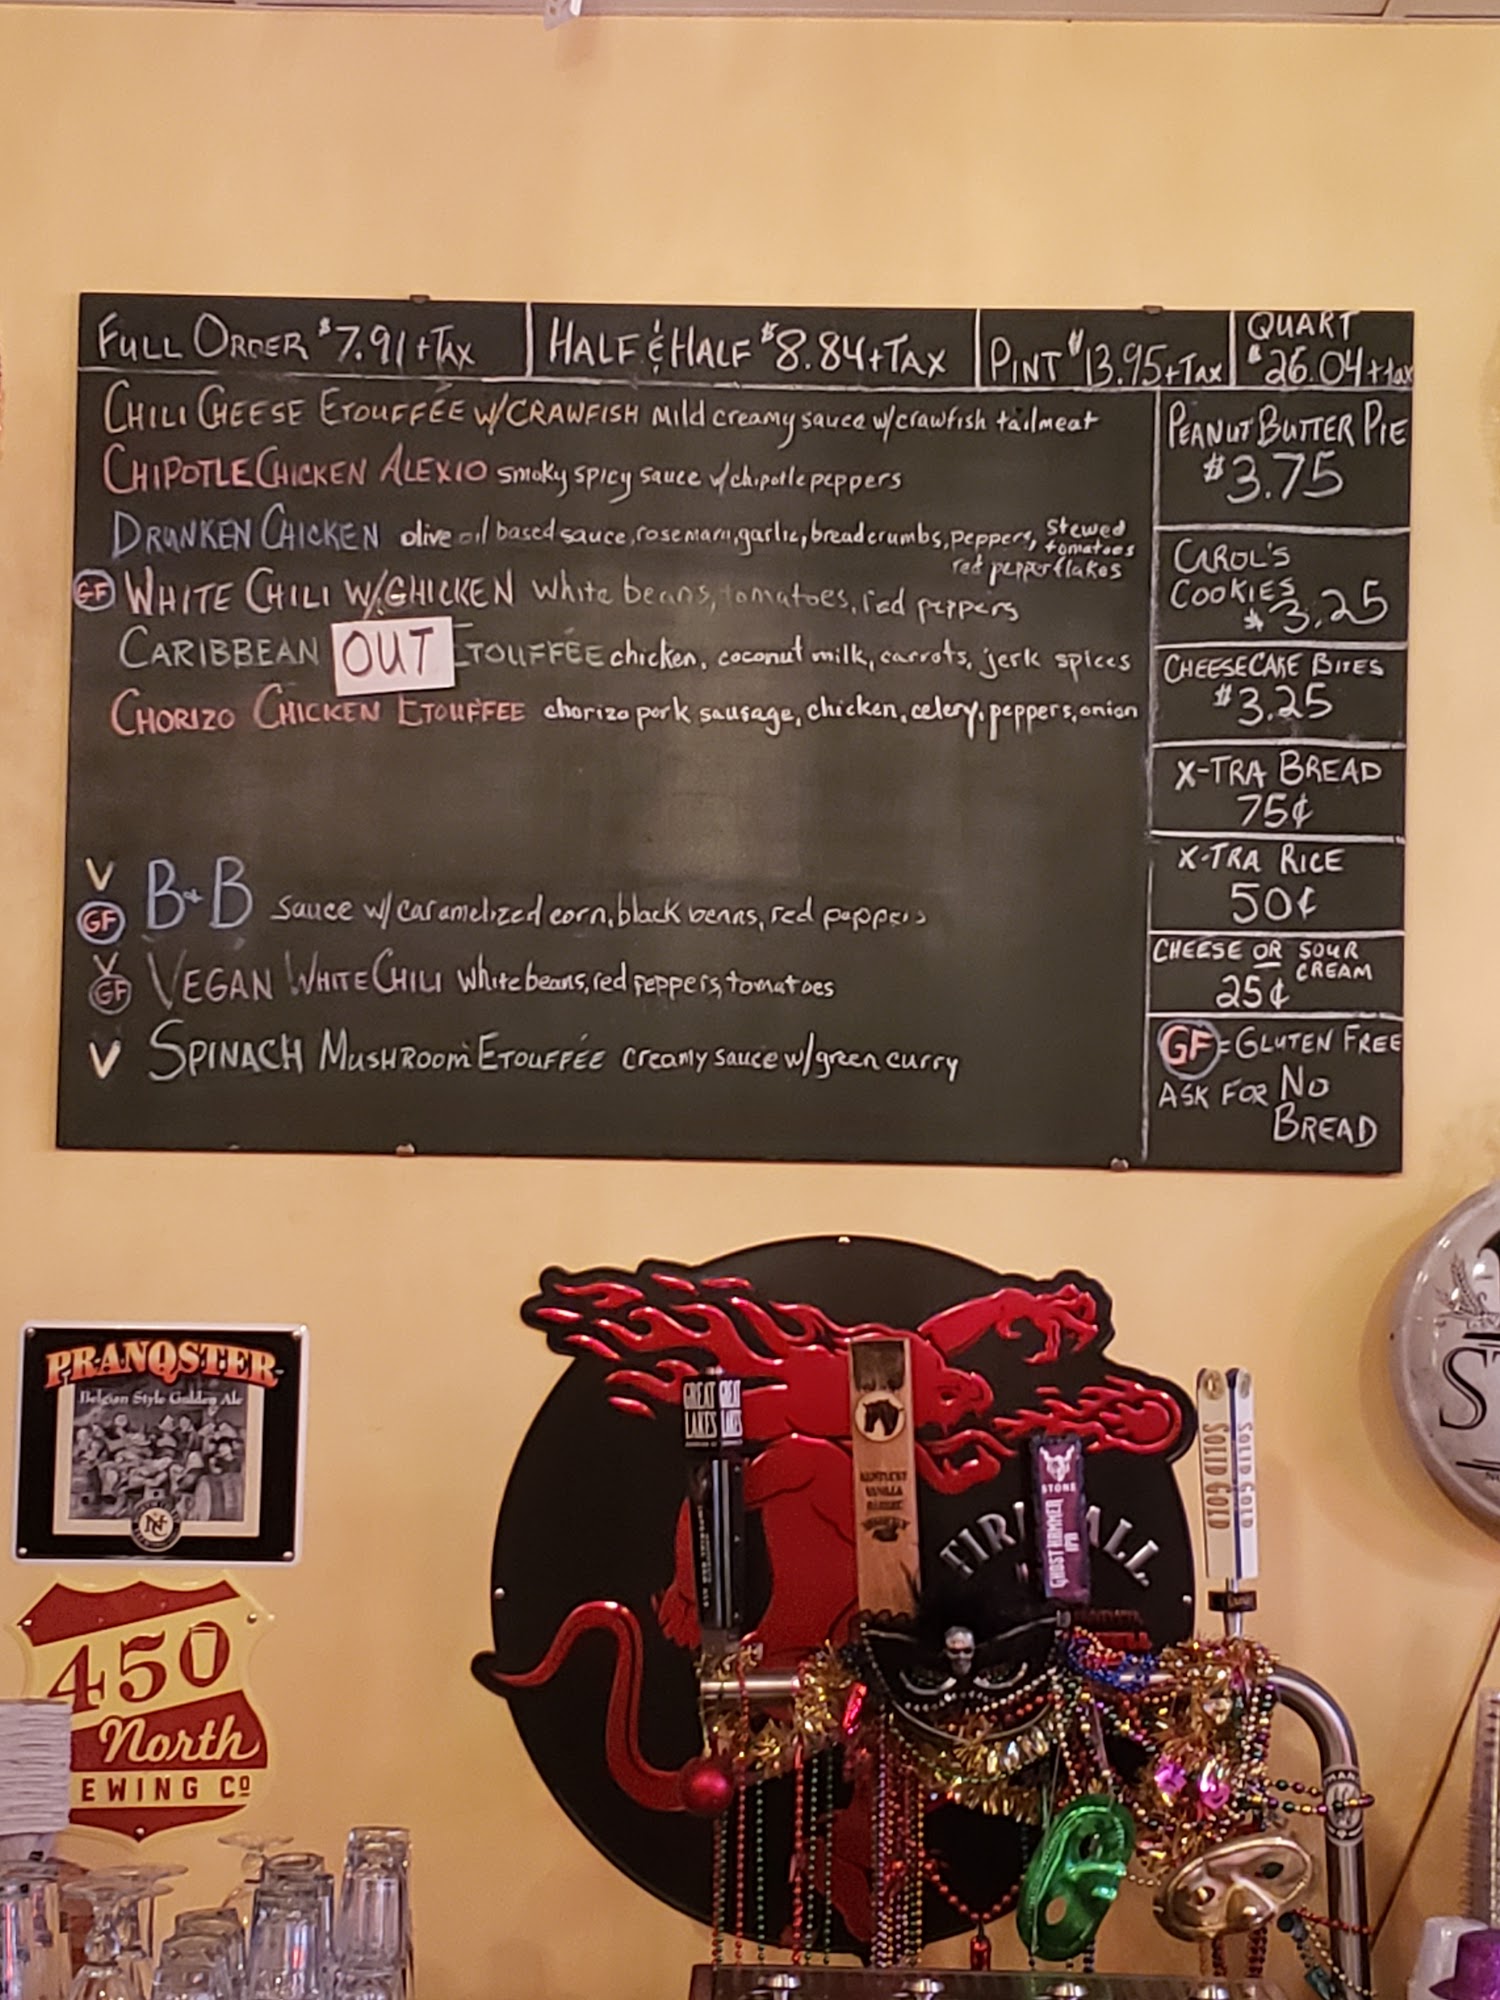 FULL ORDER $7.91 + TAX
HALF & HALF $8.84 + TAX
PINT $13.95 + TAX
QUART
$26.04 + tax
CHILI CHEESE ETOUFFÉE W/CRAWFISH Mild creamy sauce w/crawfish tailmeat
CHIPOTLE CHICKEN ALEXIO smoky spicy sauce w/chipotle peppers
DRUNKEN CHICKEN olive oil based sauce, rosemary, garlic, breadcrumbs, peppers, stewed
tomatoes
red pepper flakes
GF WHITE CHILI W/CHICKEN white beans, tomatoes, red peppers
CARIBBEAN OUT ETOUFFÉE chicken, coconut milk, carrots, jerk spices
CHORIZO CHICKEN ETOUFFÉE chorizo pork sausage, chicken, celery, peppers, onion
V
GF B+B sauce w/caramelized corn, black beans, red peppers
V
GF VEGAN WHITE CHILI white beans, red peppers, tomatoes
V SPINACH MUSHROOM ETOUFFÉE creamy sauce w/green curry
PEANUT BUTTER PIE
$3.75
CAROL'S
COOKIES
$3.25
CHEESECAKE BITES
$3.25
X-TRA BREAD
75¢
X-TRA RICE
50¢
CHEESE OR SOUR
CREAM
25¢
GF = GLUTEN FREE
ASK FOR NO
BREAD
PRANQSTER
Belgian Style Golden Ale
NC
450
North
EWING CO
GREAT LAKES
GREAT LAKES
KENTUCKY
VANILLA
BARREL
STONE
GHOST HAMMER
IPA
FIR ALL
SOLID GOLD
SOLID GOLD
ST